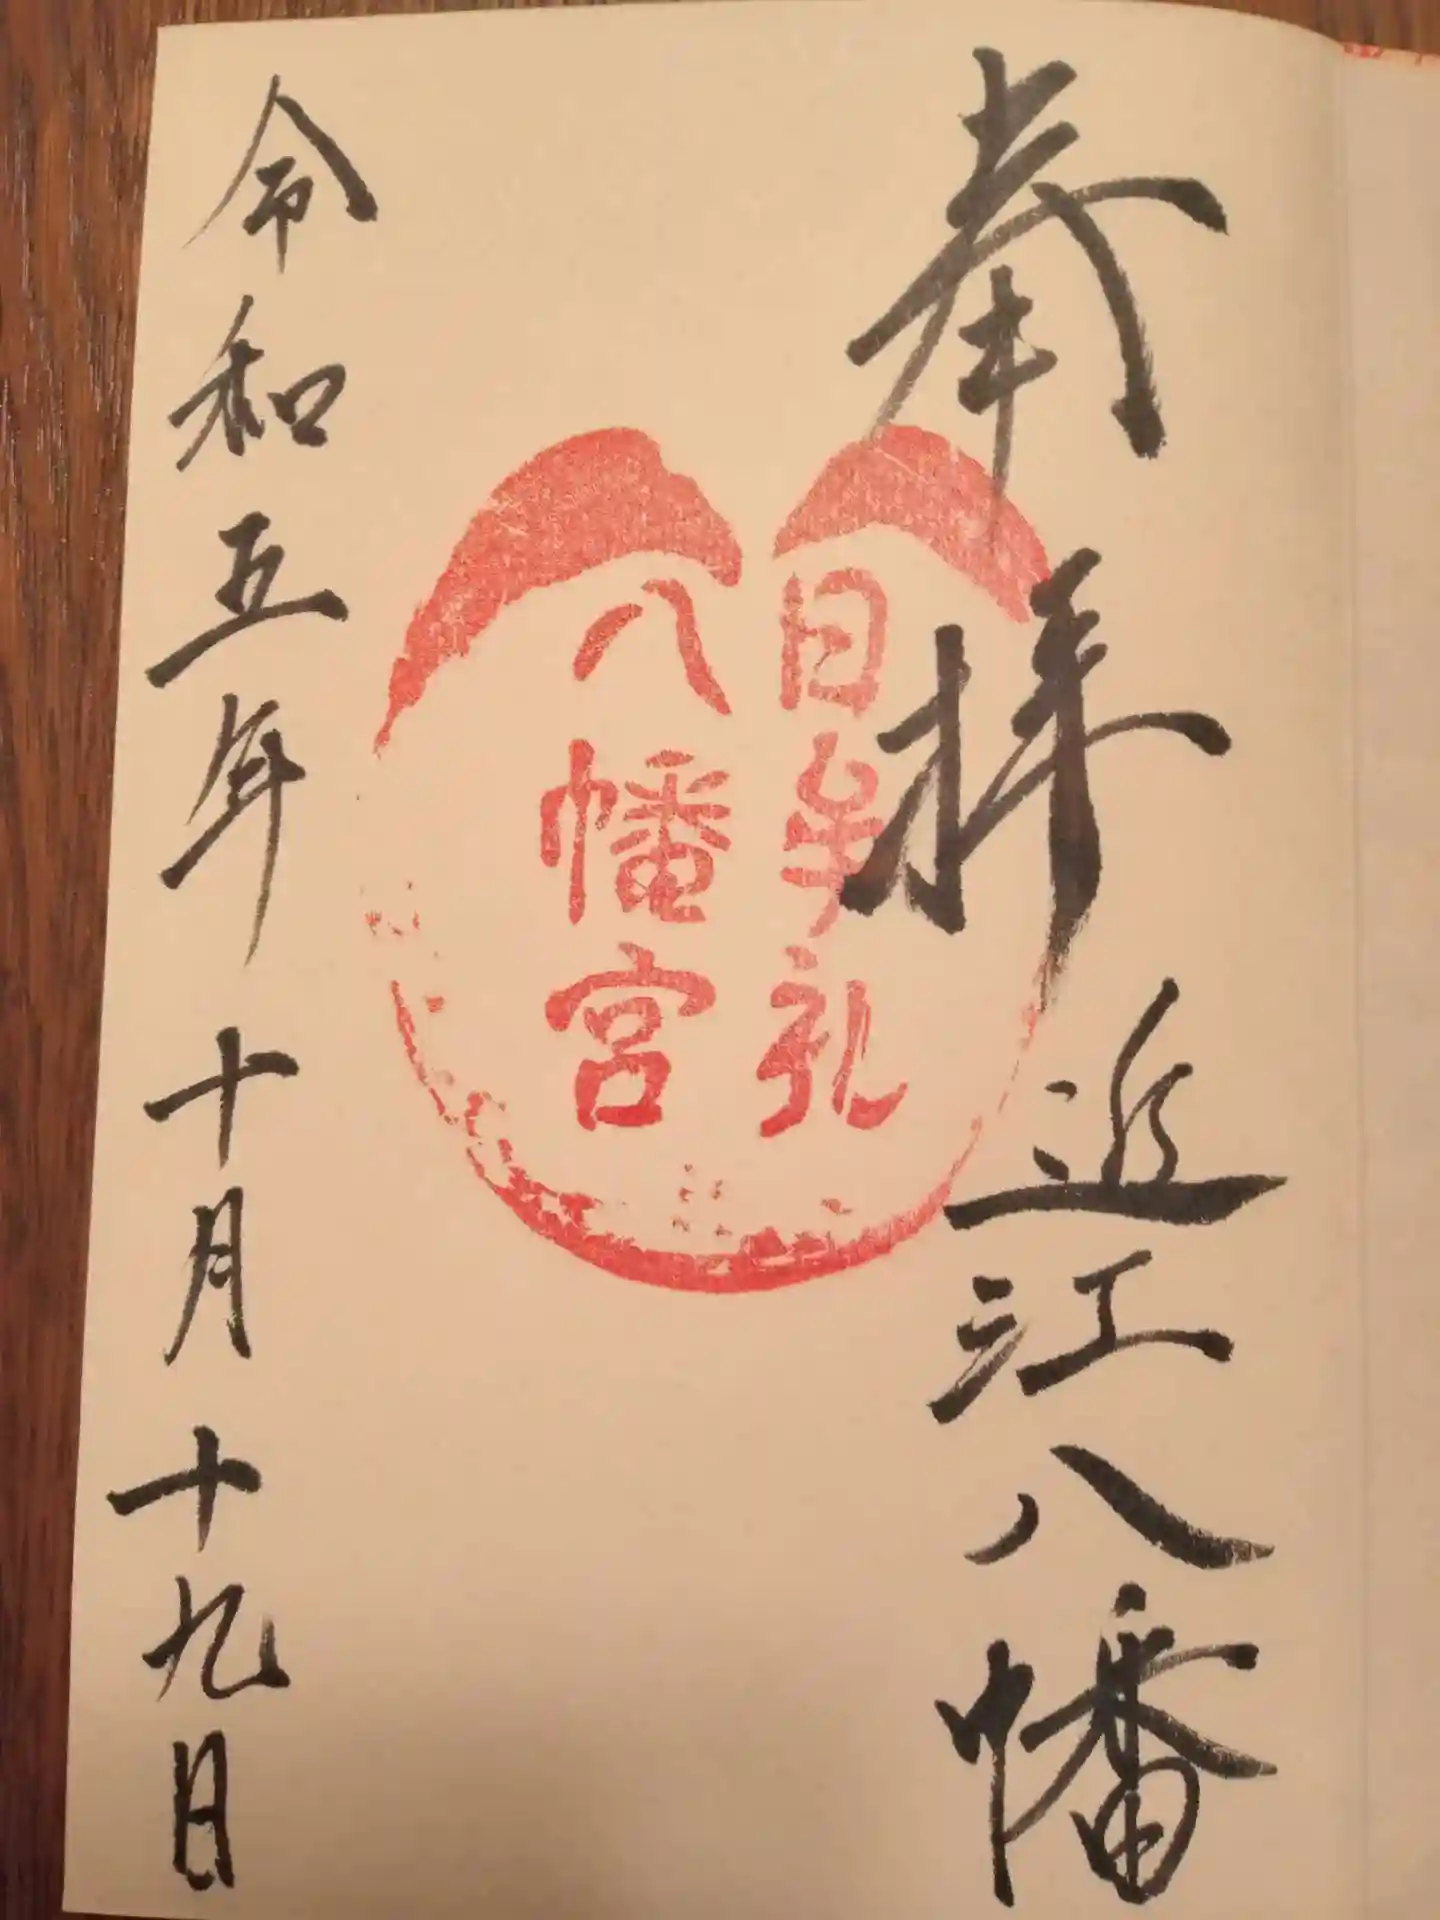 奉拝
近江八幡
日牟礼
八幡宮
令和五年十月十九日